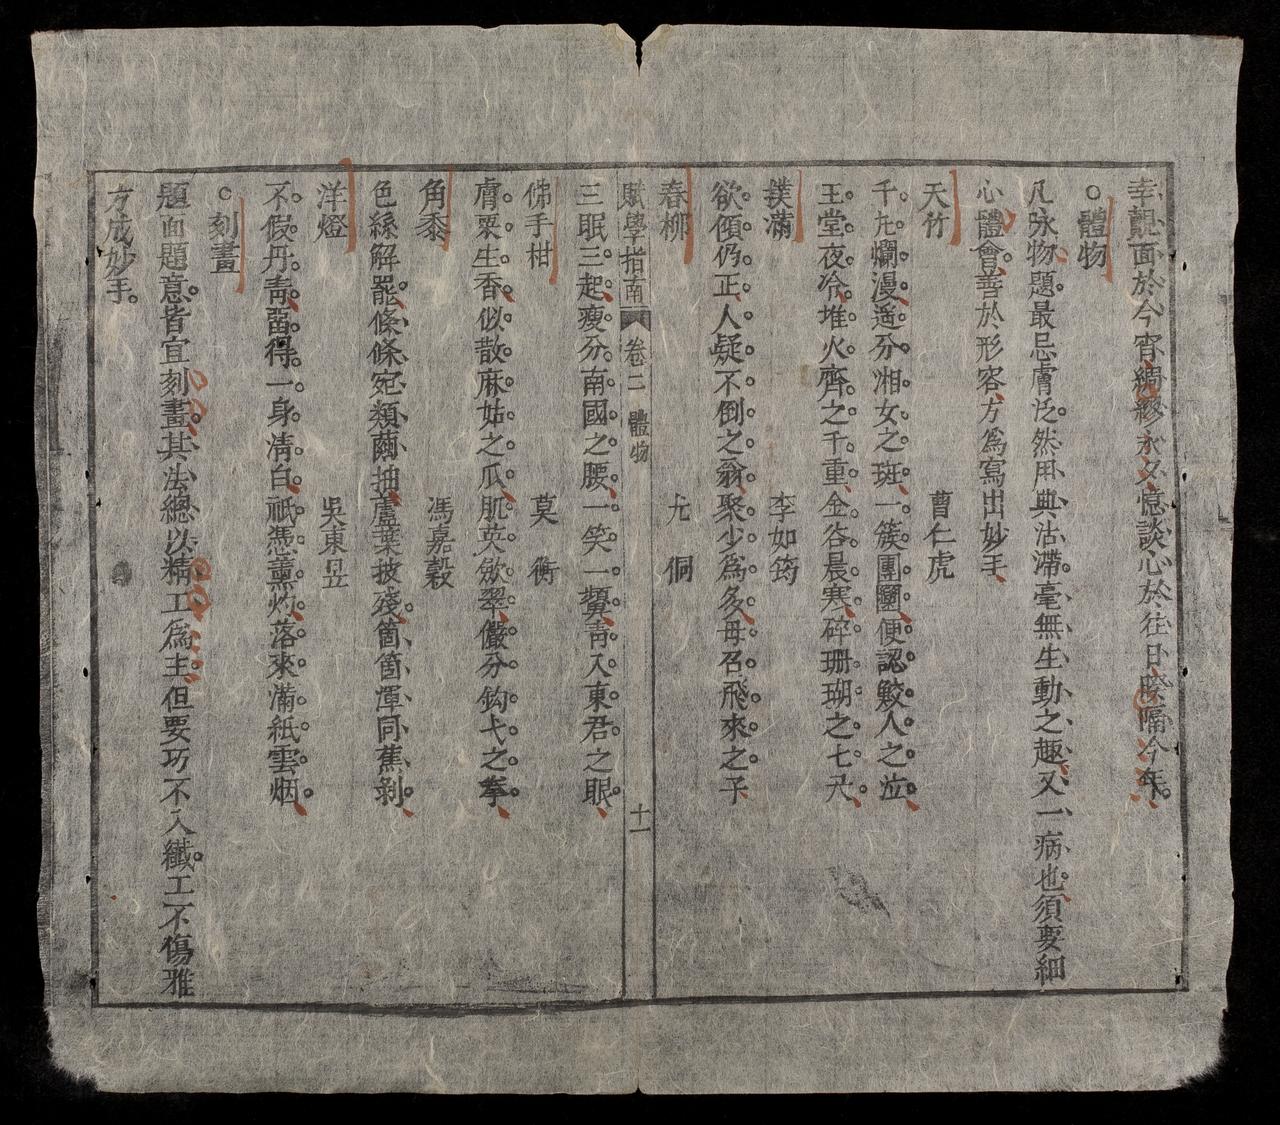 幸覿面於今宵綢繆永夕憶談心於往日暌隔今年。
○體物
凡咏物題最忌膚泛。然用典沾滯。毫無生動之趣。又一病也。須要細
心體會。善於形容方為寫出妙手
天竹 曹仁虎
千卮爛漫。遥分湘女之斑。一簇團圞。便認鮫人之泣
王堂夜冷。堆火齊之千重。金谷晨寒。碎珊瑚之七尺
撲滿 李如筠
欲傾仍正。人疑不倒之翁。聚少為多。母召飛來之子
春柳 尤侗
賦學指南 卷二 體物 十一
三眠三起。瘦分南國之腰。一笑一顰。青入東君之眼
佛手柑 莫衡
膚粟生香。似散麻姑之瓜。肌英斂翠。儼分鈎弋之拳
角黍 馮嘉穀
色絲解罷。條條宛類繭抽。蘆葉披殘。箇箇渾同蕉剝
洋燈 吳東昱
不假丹青。留得一身清白。祇憑薰灼。落來滿紙雲烟
○刻畫
題面題意。皆宜刻畫。其法總以精工為主。但要巧不入纖。工不傷雅
方成妙手。